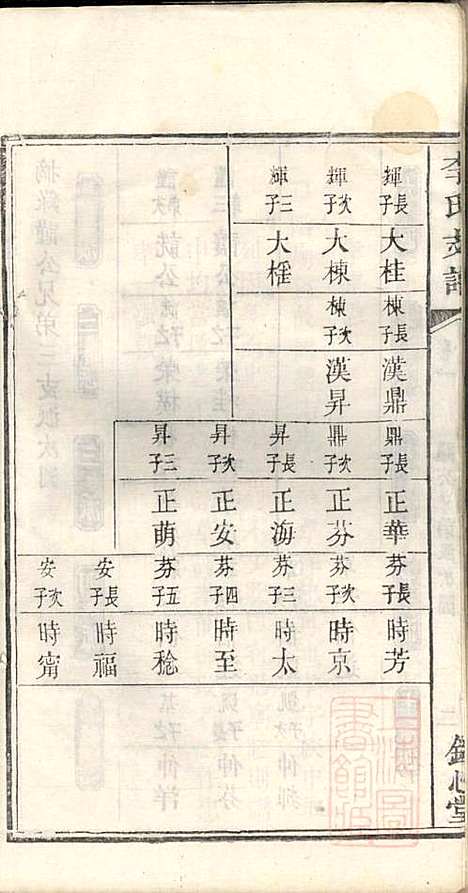 李氏支譜
輝長子 大桂
輝次子 大棟
輝三子 大槿
棟長子 漢鼎
棟次子 漢昇
鼎長子 正華
鼎次子 正芬
昇長子 正海
昇次子 正安
昇三子 正萌
芬長子 時芳
芬次子 時京
芬三子 時太
芬四子 時至
芬五子 時稔
安長子 時福
安次子 時甯
二